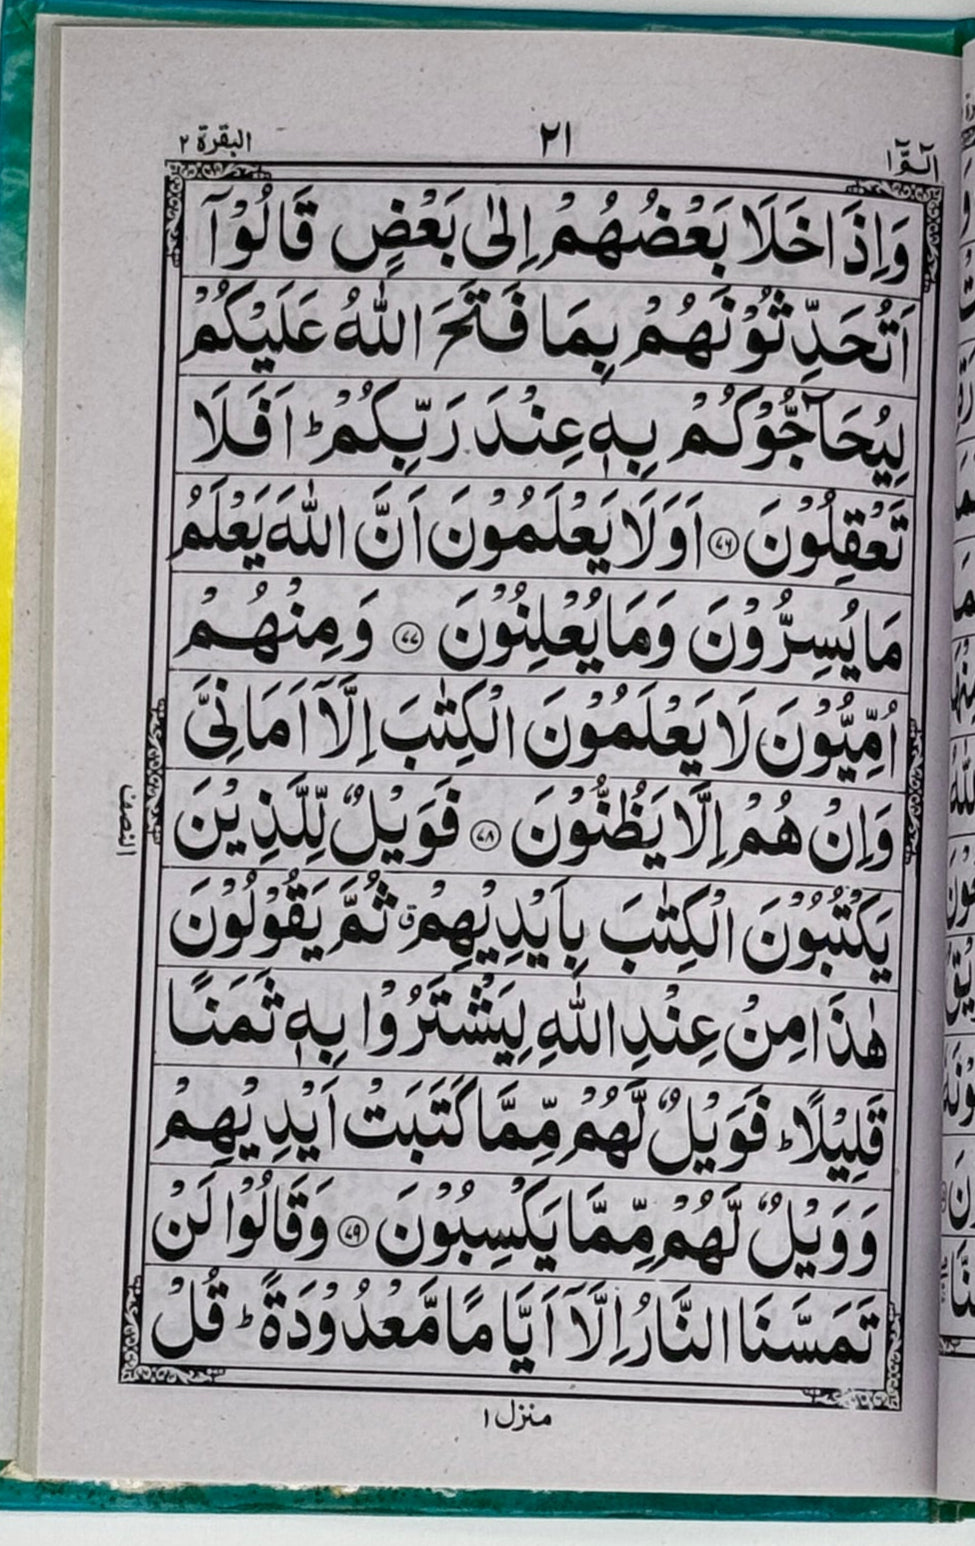 الٓـمّٓ ١
٢١
البقرة ٢
وَاِذَا خَلَا بَعْضُهُمْ اِلٰى بَعْضٍ قَالُوْٓا
اَتُحَدِّثُوْنَهُمْ بِمَا فَتَحَ اللّٰهُ عَلَيْكُمْ
لِيُحَآجُّوْكُمْ بِهٖ عِنْدَ رَبِّكُمْ ؕ اَفَلَا
تَعْقِلُوْنَ ﴿۷۶﴾ اَوَلَا يَعْلَمُوْنَ اَنَّ اللّٰهَ يَعْلَمُ
مَا يُسِرُّوْنَ وَمَا يُعْلِنُوْنَ ﴿۷۷﴾ وَمِنْهُمْ
اُمِّيُّوْنَ لَا يَعْلَمُوْنَ الْكِتٰبَ اِلَّآ اَمَانِىَّ
وَاِنْ هُمْ اِلَّا يَظُنُّوْنَ ﴿۷۸﴾ فَوَيْلٌ لِّلَّذِيْنَ
يَكْتُبُوْنَ الْكِتٰبَ بِاَيْدِيْهِمْ ۗ ثُمَّ يَقُوْلُوْنَ
هٰذَا مِنْ عِنْدِ اللّٰهِ لِيَشْتَرُوْا بِهٖ ثَمَنًا
قَلِيْلًا ؕ فَوَيْلٌ لَّهُمْ مِّمَّا كَتَبَتْ اَيْدِيْهِمْ
وَوَيْلٌ لَّهُمْ مِّمَّا يَكْسِبُوْنَ ﴿۷۹﴾ وَقَالُوْا لَنْ
تَمَسَّنَا النَّارُ اِلَّآ اَيَّامًا مَّعْدُوْدَةً ؕ قُلْ
النصف
منزل ١